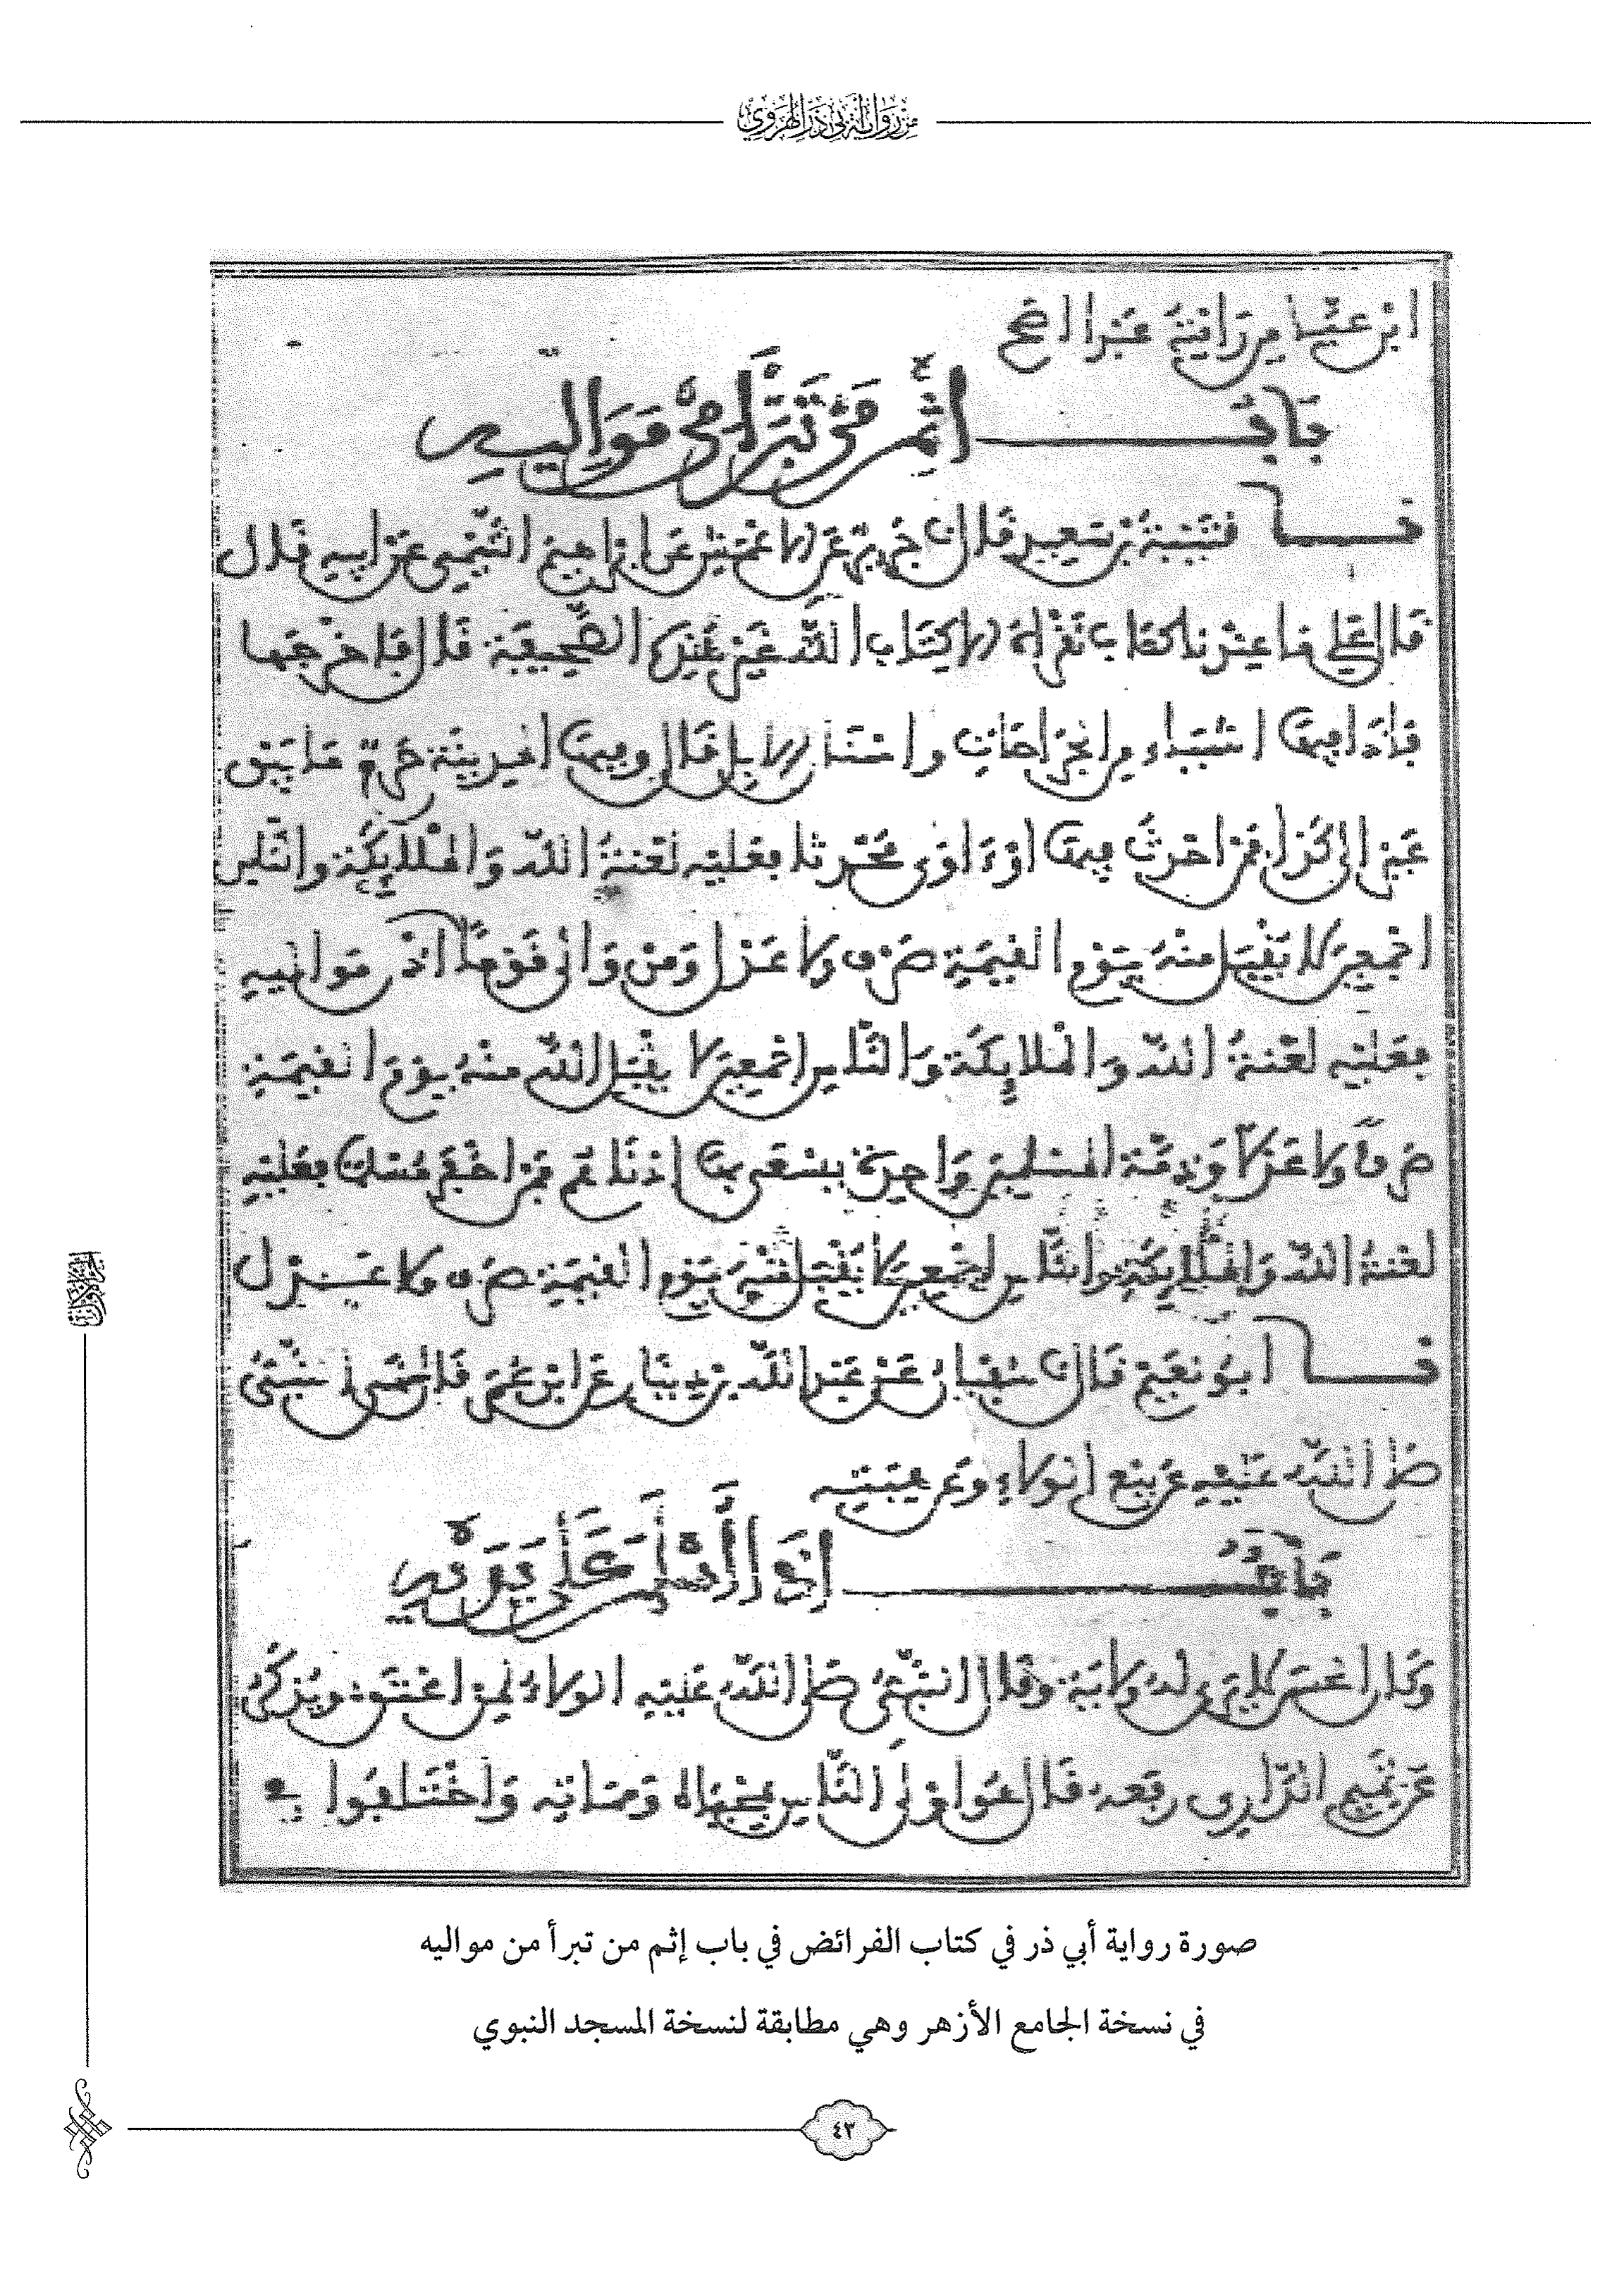 من رواية أبي ذر الهروي
ابن عباس رأيته عبدا أصح
باب إثم من تبرأ من مواليه
نا قتيبة بن سعيد قال نا جرير عن الأعمش عن إبراهيم التيمي عن أبيه قال
قال علي ما عندنا كتاب نقرأه إلا كتاب الله غير هذه الصحيفة قال فأخرجها
فإذا فيها أشياء من الجراحات وأسنان الإبل قال وفيها المدينة حرم ما بين
عير إلى كذا فمن أحدث فيها أو ءاوى محدثا فعليه لعنة الله والملائكة والناس
أجمعين لا يقبل منه يوم القيمة صرف ولا عدل ومن والى قوما إذن مواليه
فعليه لعنة الله والملائكة والناس أجمعين لا يقبل الله منه يوم القيمة
صرفا ولا عدلا وذمة المسلمين واحدة يسعى بها أدناهم فمن أخفر مسلما فعليه
لعنة الله والملائكة والناس أجمعين لا يقبل منه يوم القيمة صرف ولا عدل
نا أبو نعيم قال نا سفيان عن عبد الله بن دينار عن ابن عمر قال نهى النبي
صلى الله عليه عن بيع الولاء وعن هبته
باب إذا أسلم على يديه
وكان الحسن لا يرى له ولاية وقال النبي صلى الله عليه الولاء لمن أعتق ويذكر
عن تميم الداري رفعه قال هو أولى الناس بمحياه ومماته واختلفوا في
صورة رواية أبي ذر في كتاب الفرائض في باب إثم من تبرأ من مواليه
في نسخة الجامع الأزهر وهي مطابقة لنسخة المسجد النبوي
٤٣